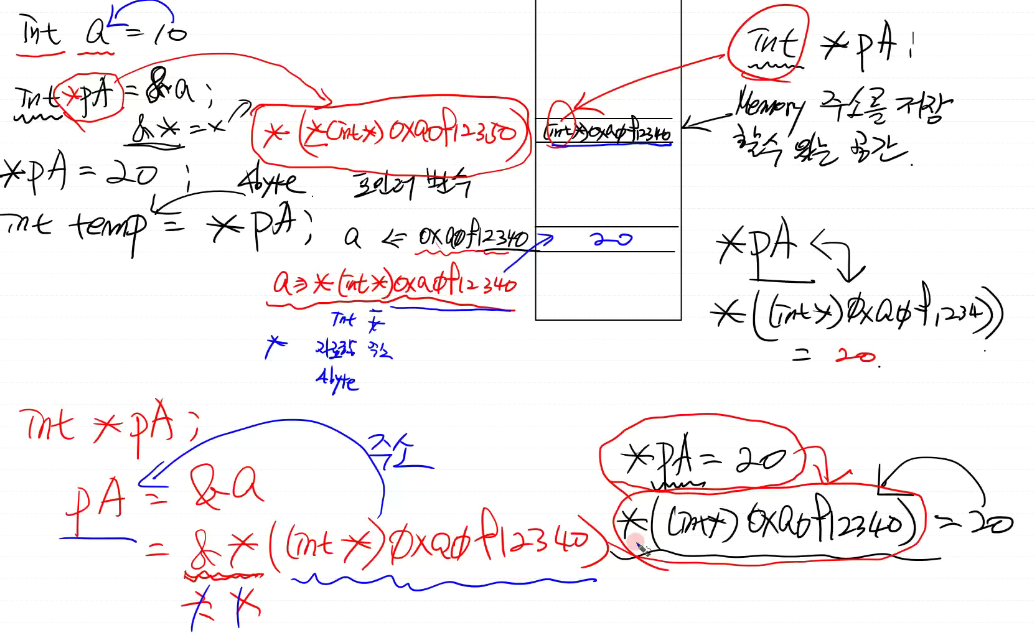 int a = 10
int *pA = &a;
& * = x
*pA = 20;
int temp = *pA;
*(*(int*)0xa0f12350)
4byte 포인터 변수
a ⇐ 0xa0f12340
a ⇒ *(int*)0xa0f12340
int *
* 자료형 주소
4byte
(int*)0xa0f12340
20
int *pA;
Memory 주소를 저장
할수 있는 공간.
*pA
*((int*)0xa0f1234))
= 20.
int *pA;
주소
pA = &a
= &*((int*)0xa0f12340)
* *
*pA = 20
*((int*)0xa0f12340) = 20